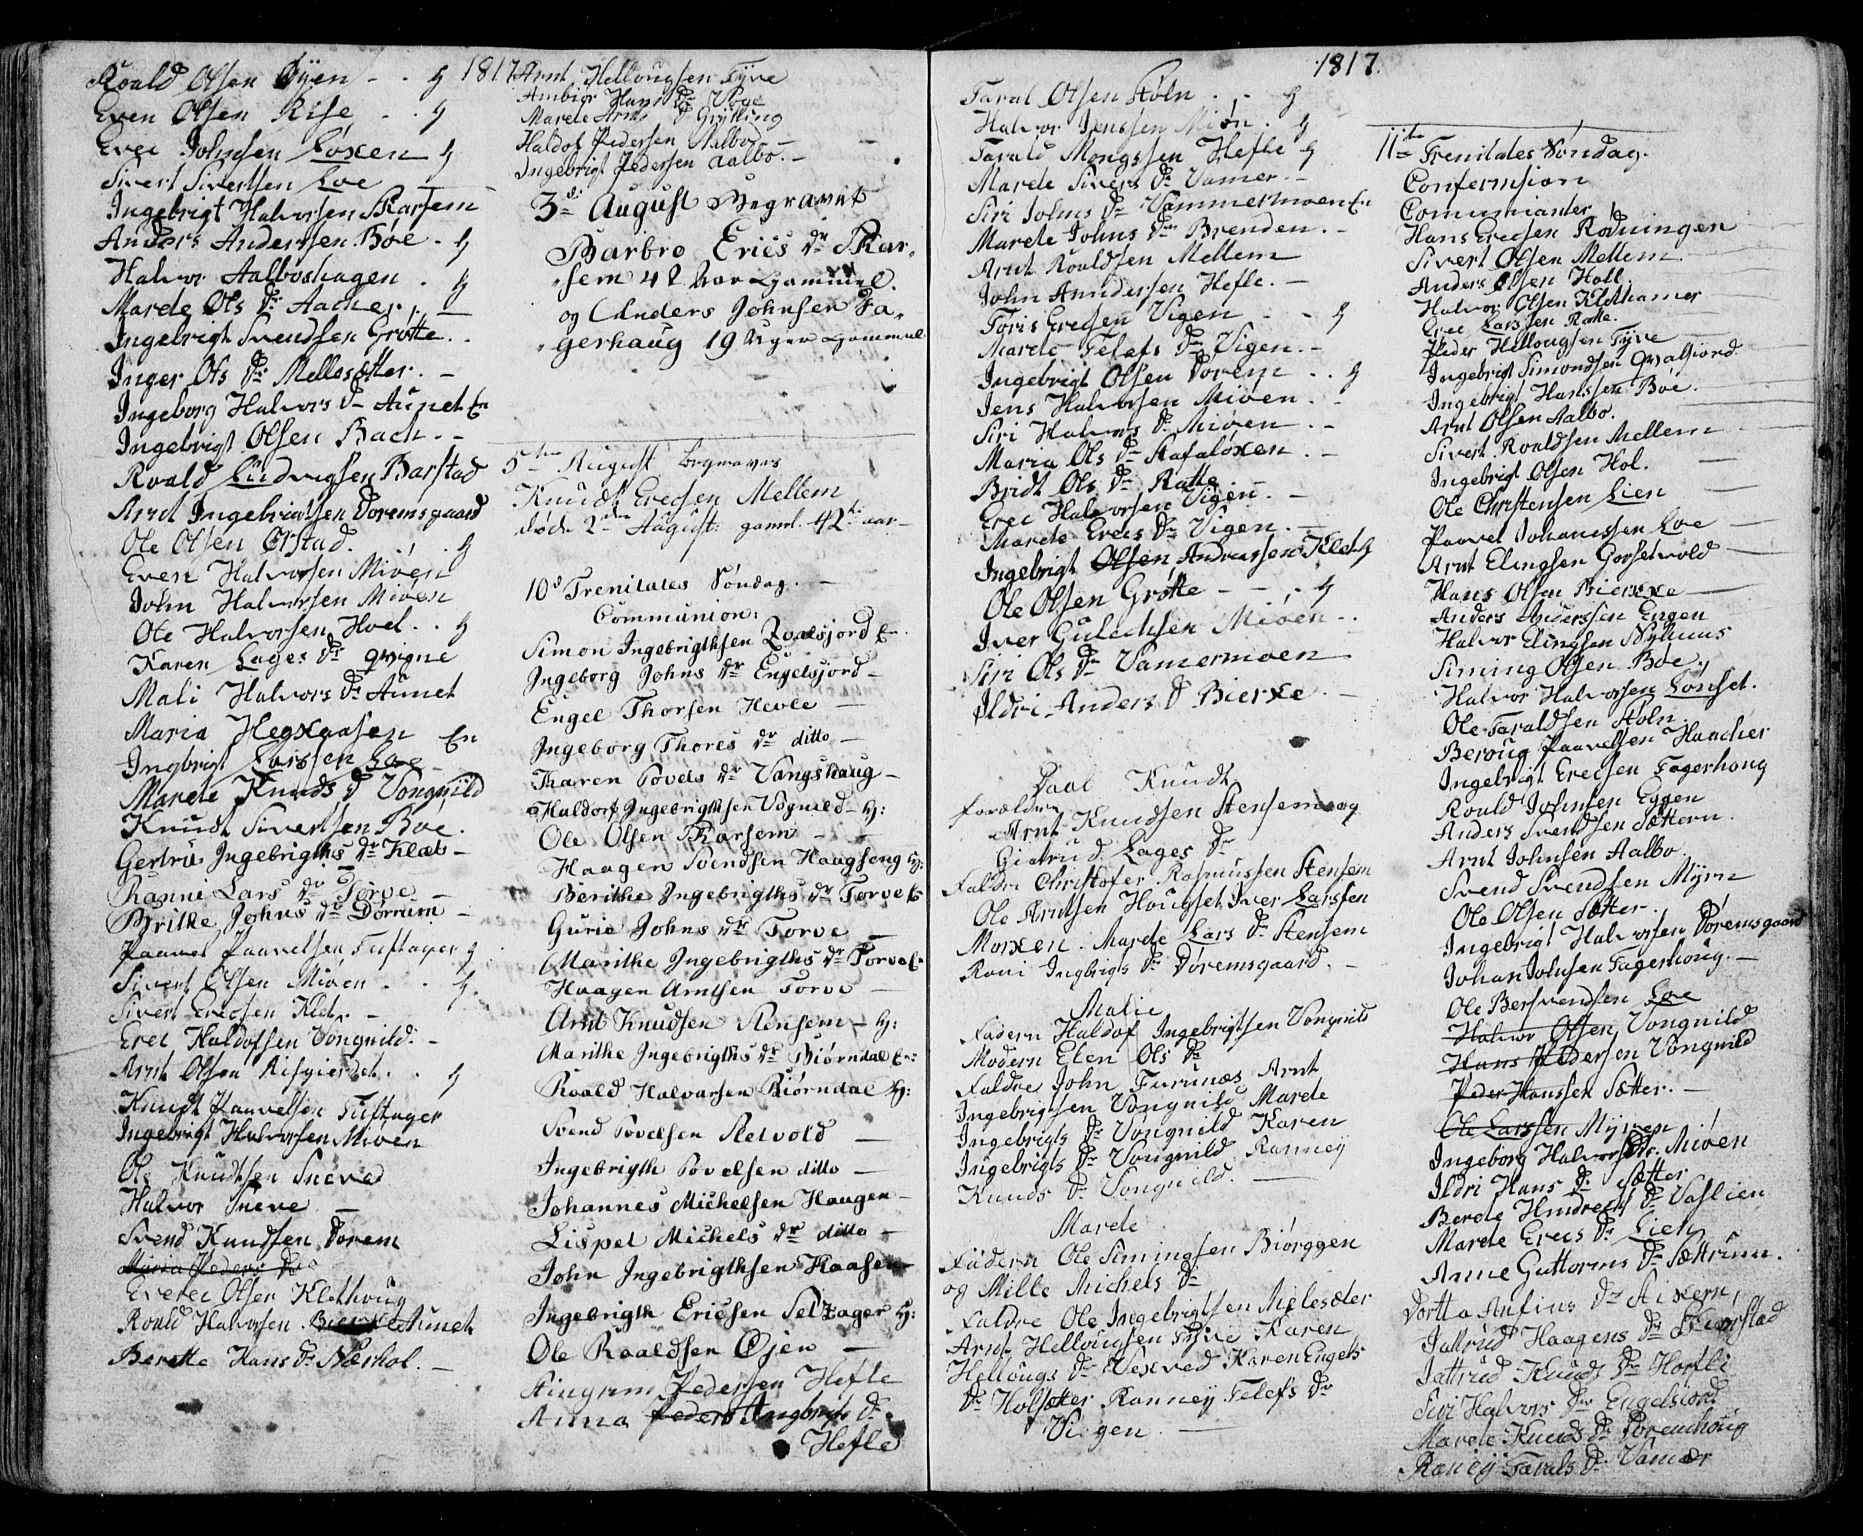 1817
Roald Olsen Øyen - . . H
Even Olsen Rise - . H
Erec Johnsen Loxen H
Sivert Sivertsen Loe -
Ingebrigt Halvorsen Skarsem
Anders Andersen Bøe . H
Halvor Aalboshagen . H
Marete Ols Dr Aacher . -
Ingebrigt Svendsen Grøtte . .
Inger Ols Dr Mellesætter . -
Ingeborg Halvors D Aunet En
Ingebrigt Olsen Bach . -
Roald Ludvigsen Barstad
Arnt Ingebrigtsen Doremsgaard
Ole Olsen Ørstad . . H
Even Halvorsen Miøen
John Halvorsen Miøen
Ole Halvorsen Hoel . . H
Karen Lages Dr Qvigne
Mali Halvors Dr Aunet
Maria Hegxaasen En
Ingbrigt Larssen Loe -
Marete Knuds D Vongnild
Knudt Sivertsen Boe .
Gertru Ingebrigths Dr Klæt -
Ranni Lars Dr Torve -
Brithe Johns Dr Dørrum -
Paavel Paavelsen Tuftager H
Sivert Olsen Miøen . . H
Sivert Erecsen Klet . -
Erec Haldofsen Vongnild . -
Arnt Olsen Risgierdet . . H
Knudt Paavelsen Tuftager
Ingebrigt Halvorsen Miøen
Ole Knudtsen Sneved
Halvor Sneve -
Svend Knudsen Dorem
Maria Peders Dr
Everec Olsen Klethoug
Roald Halvorsen Aunet
Berette Hans Dr Nærhol . -
Arnt Hellougsen Tyve
Ambior Hans Dr Voge
Marete Arns D Grytting
Haldof Pedersen Aalbo -
Ingebrigt Pedersen Aalbo . -
3de August Begravet
Barbro Erics Dr Skar-
sem 42 Aar Gammel.
og Anders Johnsen Fa-
gerhaug 19 Uger Gammel
5te August begraves
Knudt Erecsen Mellem
døde 2den August: gaml. 42 aar -
10de Trenitates Søndag . -
Communion:
Simon Ingebrigthsen Qvalsjord E
Ingeborg Johns Dr Engelsjord -
Engel Thorsen Hevle -
Ingeborg Thores Dr ditto -
Karen Povels Dr Vangshaug -
Haldorf Ingebrigthsen Vognild - H:
Ole Olsen Skarsem - -
Haagen Svendsen Haagseng H:
Berithe Ingebrigths Dr Torve E
Gurie Johns Dr Torve -
Marithe Ingebrigths Dr Torve E
Haagen Arntsen Torve -
Arnt Knudsen Stensem - H:
Marithe Ingebrigths Dr Biørndal E:
Roald Halvarsen Biørndal H:
Svend Povelsen Sletvold -
Ingebrigth Povelsen ditto -
Johannes Michelsen Haugen -
Lispet Michels Dr ditto -
John Ingebrigthsen Haasen
Ingebrigth Ericsen Seltager H:
Ole Roaldsen Øjen -
Stingrim Pedersen Hefle
Anna Peders Ingbrigts D
Hefle
1817.
Taral Olsen Støln . - H
Halvor Jenssen Miøn . H
Tarald Mongssen Hefle H
Marete Sivers Dr Vamer . -
Siri Johns Dr Vammermoen En
Marete Johns Dr Brenden . -
Arnt Roaldsen Mellem
John Anndersen Hefle . -
Toris Erecsen Vigen . - H
Marete Telefs Dr Vigen . -
Ingebrigt Olsen Dorem . . H
Jens Halvorsen Miøen . -
Siri Halvors Dr Miøen . -
Maria Ols Dr Stafaløxen . -
Bridt Ols Dr Ratte
Erec Halvorsen Vigen . -
Marete Erecs Dr Vigen . -
Ingebrigt Olsen Andreassen Klet H
Ole Olsen Grøtte - - . H
Iver Gulechsen Miøen . .
Siri Ols Dr Vamermoen
Ildri Anders D Bierxe . -
Daab Knudt
Forældre
Arnt Knudsen Stensem og
Giertrud Lages Dr
Faldre Christofer Rasmussen Stensem
Ole Arntsen Hougset Iver Larssen
Morxen . Marete Lars Dr Stensem
Rani Ingbrigs Dr Doremsgaard . -
Malie
Fadern Haldof Ingebrigtsen Vongnild
Modern Elen Ols Dr
Faldre John Furunæs Arnt
Ingebrigtsen Vongnild Marete
Ingebrigts Dr Vongnild Karen
Ingebrigts Dr Vongnild Ranney
Knuds D Vongnild . -
Marete
Fadern Ole Simingsen Biørggen
og Mille Michels Dr
Faldre Ole Ingebrigtsen Melesæter
Arnt Hellougsen Tyve Karen
Hellougs Dr Vexved Karen Engels
Dr Holsætter Ranney Telefs Dr
Viggen . -
11te Trenitates Søndag.
Confermsion
Comunianter
Hans Erecsen Rødningen
Sivert Olsen Mellem
Anders Olsen Holl
Halvor Olsen Klethamer
Erec Larssen Ratte.
Peder Hellougsen Tyve
Ingebrigt Simondsen Qvalsiord
Ingebrigt Hanssen Boe.
Arnt Olsen Aalbo.
Sivert Roaldsen Mellem
Ingebrigt Olsen Hol.
Ole Christensen Lien
Paavel Johanessen Loe
Arnt Elingsen Gorsetvold
Hans Olsen Bierxe
Anders Anderssen Engen
Halvor Elingsen Nyhuus
Siming Olsen Bøe.
Halvor Halvorsen Lonset.
Ole Taraldsen Støln.
Beroug Paavelsen Haacher
Ingebrigt Erecsen Fagerhoug
Roald Johnsen Eggen
Anders Svendsen Sættern.
Arnt Johnsen Aalbo
Svend Svendsen Myrn
Ole Olsen Sætter.
Ingebrigt Halvorsen Doremsgaard
Johan Johnsen Fagerhoug. -
Ole Bersvendsen Loe
Halvor Olsen Vongnild
Hans Pedersen Vongnild
Peder Hanssen Sætter. -
Ole Larssen Myren
Ingeborg Halvors Dr. Miøen
Ildri Hans Dr Sætter
Berete Hindrecht Dr Vaslien
Marete Erecs Dr Lien
Anne Guttorms Dr Sættrum.
Dortta Anfins Dr Aixern,
Jattrud Haagens Dr
Jattrud Knuds Dr Horfli
Siri Halvors Dr Engelsiord
Marete Knuds Dr Doremhoug
Raney Tarals Dr Vamær